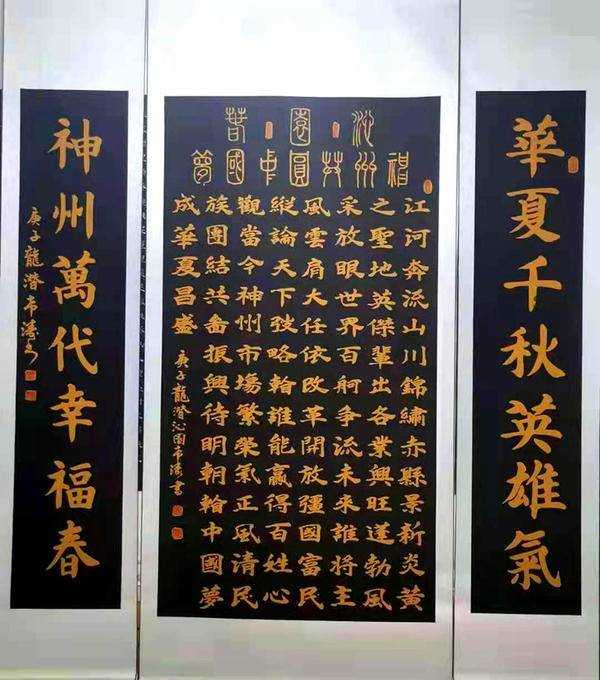 華夏千秋英雄氣
沁園春
神州共圓中國夢
江河奔流山川錦繡赤縣景新炎黃
之聖地英傑輩出各業興旺蓬勃風
采放眼世界百舸爭流未來誰將主
風雲肩大任依改革開放彊國富民
縱論天下略誰能贏得百姓心
觀當今神州市場繁榮氣正風清民
族團結共振興待明朝中國夢
成華夏昌盛
庚子龍潛沁園布濤書
神州萬代幸福春
庚子龍潛布濤書